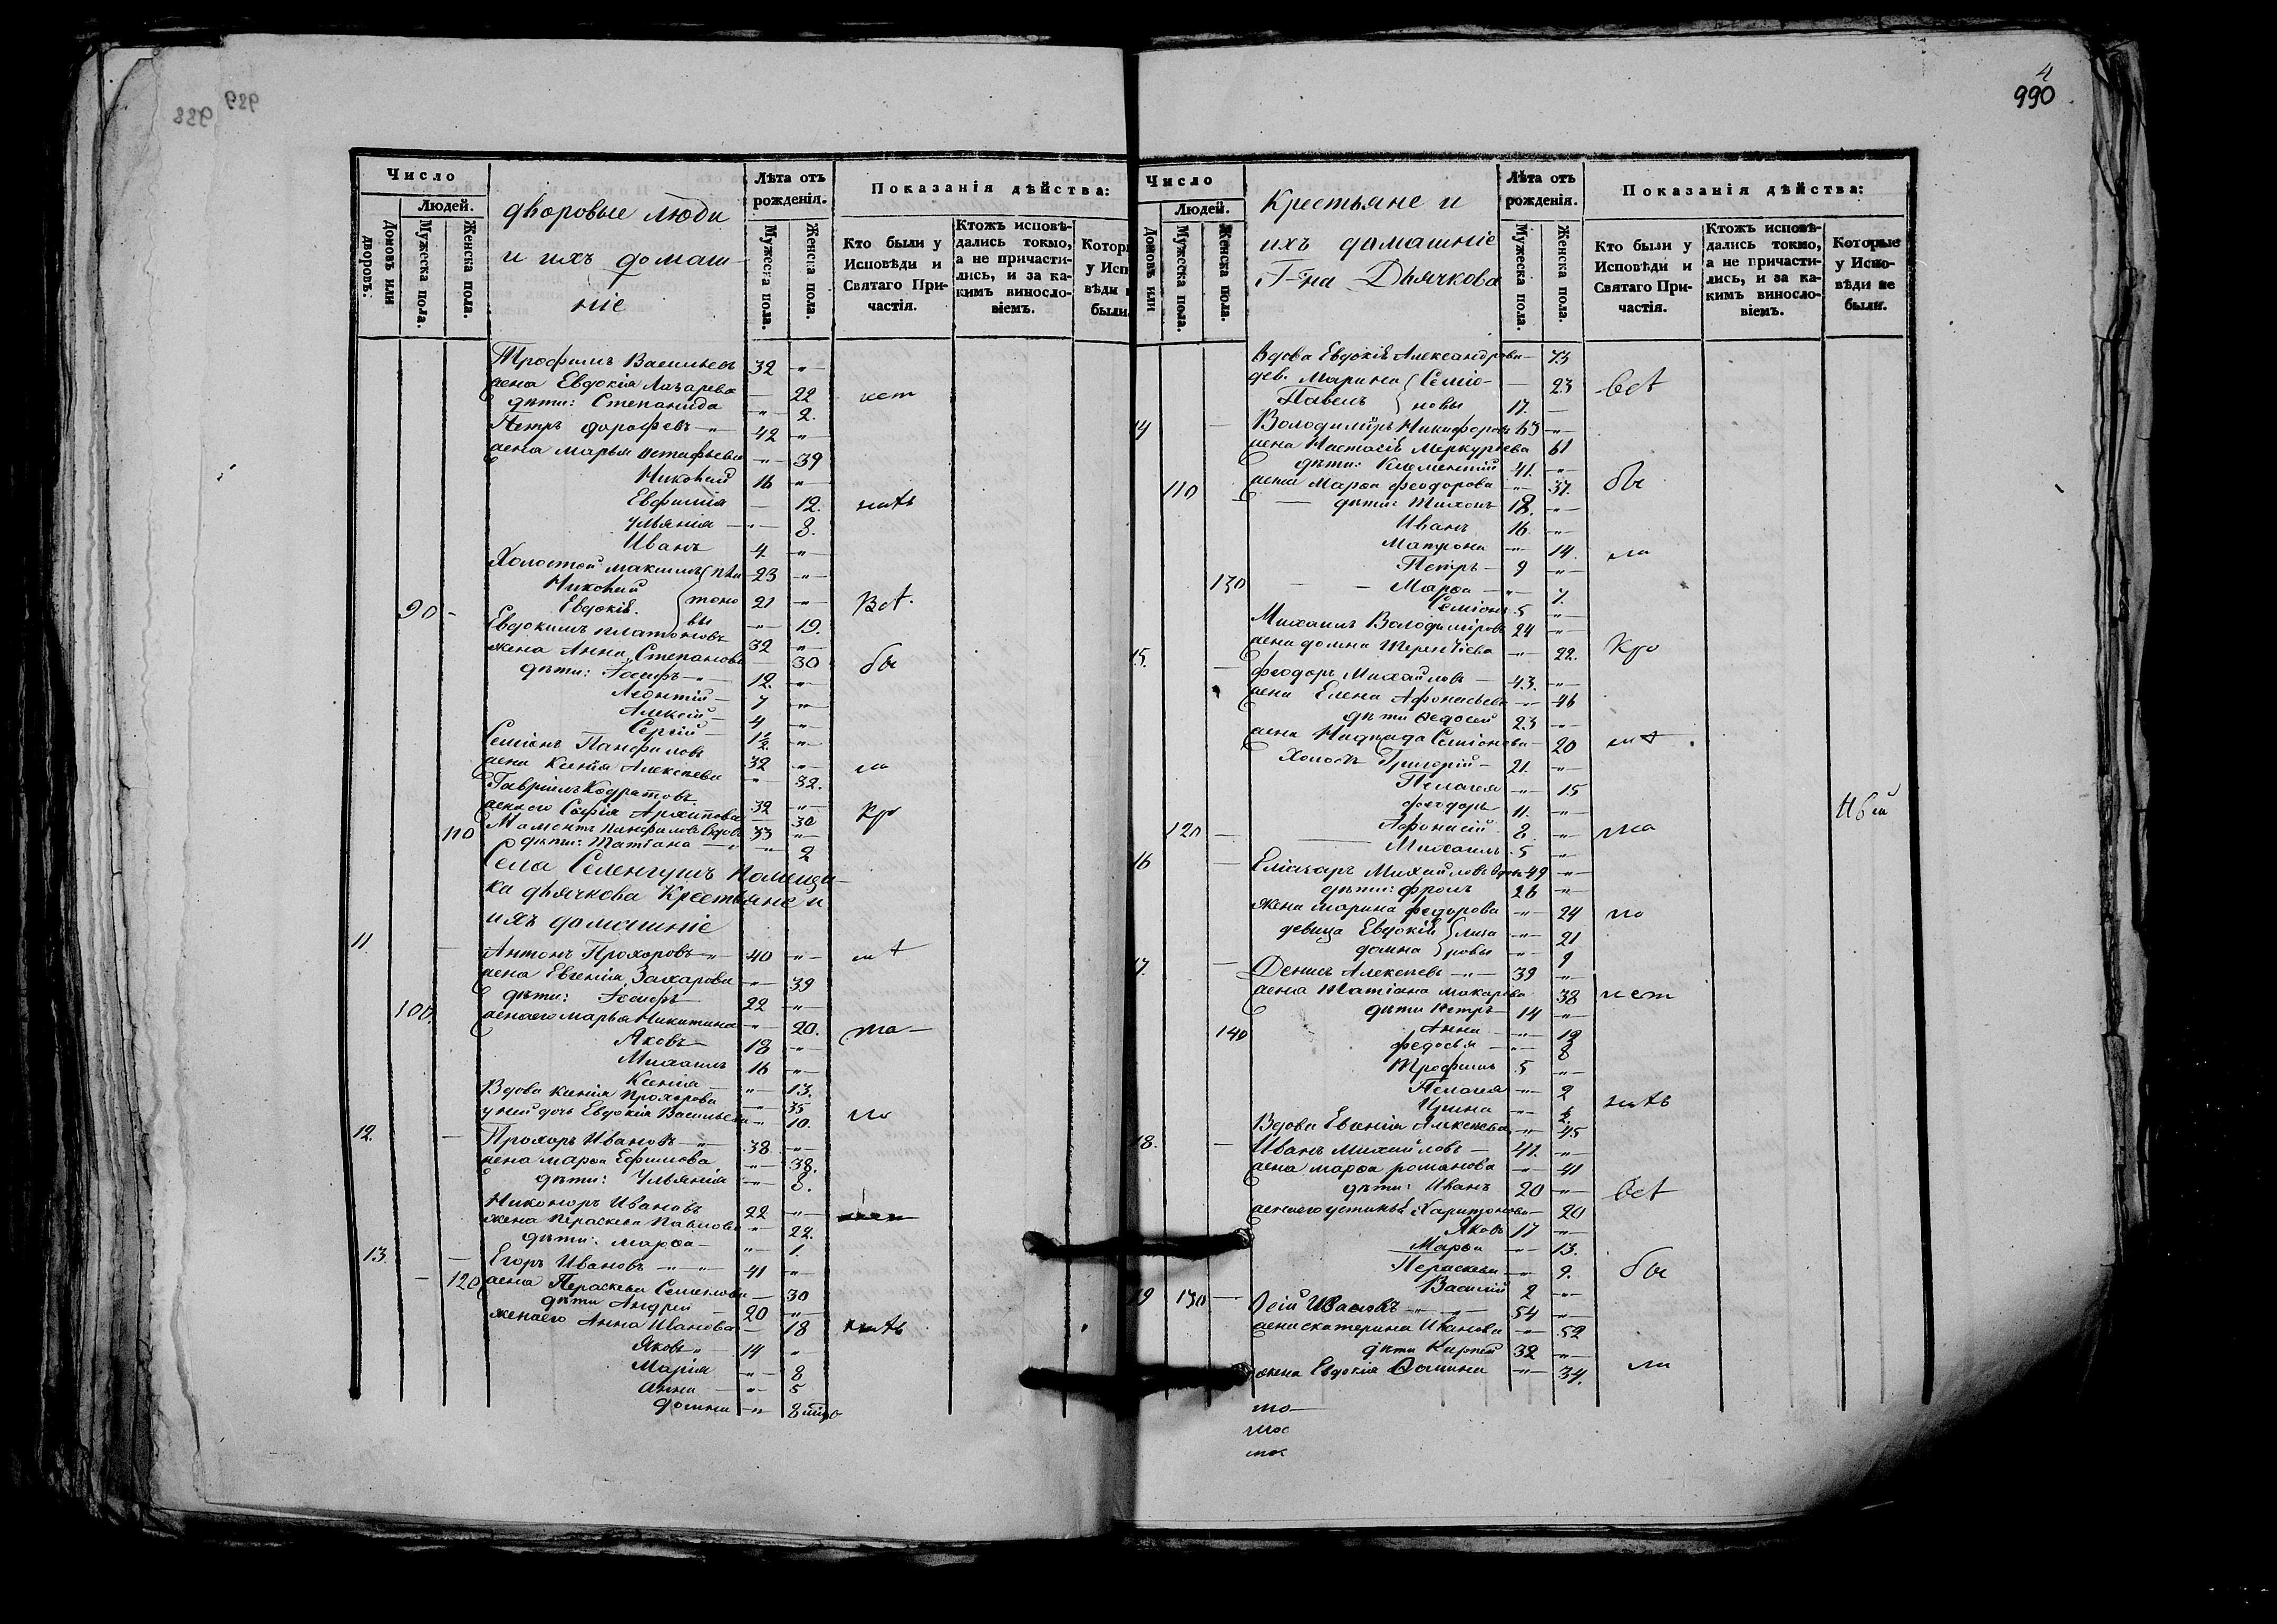 4
990
929
988
Число
Людей.
Домовъ или дворовъ.
Мужеска пола.
Женска пола.
дворовые люди
и ихъ домаш
ніе
Лѣта отъ
рожденія.
Мужеска пола.
Женска пола.
Показанія дѣйства:
Кто были у
Исповѣди и
Святаго При-
частія.
Ктожъ исповѣ-
дались токмо,
а не причасти-
лись, и за ка-
кимъ винosло-
віемъ.
Которы
у Исп
вѣди н
были.
Трофимъ Васильевъ 32 „
жена Евдокія Лазарева — 22
дѣти: Степанида „ 2.
Петръ дорофевъ „ 42 „
жена Марья Остафьева „ 39
Николай 16 „
Евфимія — 12.
Ульянія — „ 8.
Иванъ 4 „
Холостой максимъ Пла 23 „
Николай тоно 21 „ Всѣ
90 — Евдокія. вы „ 19.
Евдокимъ платоновъ 32 „
жена Анна Степанова — 30 бы
дѣти: Іосифъ „ 12. „
Леонтій — 7 „
Алексѣй — 4 „
Сергій — 1½ „
Семіонъ Панфиловъ 32 „
жена Ксенія Алексѣева „ 32. ли
Гавріилъ Кодратовъ 32 „
жена его Софія Архипова — 30 Кро
110 Мамонтъ панфиловъ вдовъ 33 „
дѣти: Татіана — „ 2
Села Селенгушъ помѣщи-
ка дьячкова Крестьяне и
ихъ домашніе
11. — Антонъ Прохоровъ „ 40 „
жена Евгенія Захарова „ 39
дѣти: Іосифъ 22 „
100. жена его Марья Никитина „ 20. та —
Яковъ — 18 „
Михаилъ 16 „
Ксенія — „ 13.
Вдова Ксенія Прохорова „ 35
у ней дочь Евдокія Васильева „ 10. го
12. — Прохоръ Ивановъ „ 38 „
жена марѳа Ефимова „ 38.
дѣти: Ульянія „ 8.
Никоноръ Ивановъ 22 „
жена Пераскева Павлова „ 22.
дѣти: марѳа — „ 1.
13. — Егоръ Ивановъ „ 41 „
— 120 жена Пераскева Семенова — 30
дѣти Андрей — 20 „
жена его Анна Иванова — 18
Яковъ „ 14 „
Марія „ 8
Анна — „ 5
домна „ 8
Число
Людей.
Домовъ или
Мужеска пола.
Женска пола.
Крестьяне и
ихъ домашніе
Г-на Дьячкова
Лѣта отъ
рожденія.
Мужеска пола.
Женска пола.
Показанія дѣйства:
Кто были у
Исповѣди и
Святаго При-
частія.
Ктожъ исповѣ-
дались токмо,
а не причасти-
лись, и за ка-
кимъ винoсло-
віемъ.
Которые
у Испо-
вѣди не
были.
Вдова Евдокія Александрова — 73
дев. Марина Семіо- — 23 Всѣ
Павелъ новы 17. —
14 — Володиміръ Никифоровъ 63 „
жена Настасія Меркурьева 61
дѣти: Климентій 41. „
110 жена Марѳа феодорова „ 37. бы
— дѣти: Тихонъ 18. „
Иванъ 16. „
Матрона „ 14. ли
Петръ — 9 „
130 — Марѳа „ 7.
Семіонъ 5 „
Михаилъ Володиміровъ 24 „
жена домна Терентіева „ 22. Кро
15. — феодоръ Михайловъ — 43. „
жена Елена Афонасьева „ 46
дѣти Федосей 23 „
жена Надежда Семіонова — 20
Холостъ Григорій — 21. „
Пелагея „ 15
феодоръ 11. „
120 — Афонасій 8. „
Михаилъ 5 „
16 — Елизаръ Михайловъ вдовъ 49 „
дѣти: фролъ 26 „
жена марина федорова „ 24 го
девица Евдокія лиза „ 21
домна ровы „ 9
17. — Денисъ Алексѣевъ „ 39 „
жена Татіана макарова 38
дѣти Петръ 14 „
140 Анна — „ 12
федосья „ 8
Трофимъ 5 „
Пелагея „ 2
Ирина „ ½
Вдова Евгенія Алексѣева „ 45
18. — Иванъ Михайловъ — 41. „
жена марѳа романова „ 41
дѣти: Иванъ 20 „ Всѣ
жена его устинья Харитонова — 20
Яковъ 17 „
Марѳа „ 13.
Пераскева „ 9. бы
Василій 2 „
19 130 — Осіи Ивановъ „ 54 „
жена екатерина Иванова „ 52
дѣти Кирпей 32 „
жена Евдокія Фомина „ 34. ли